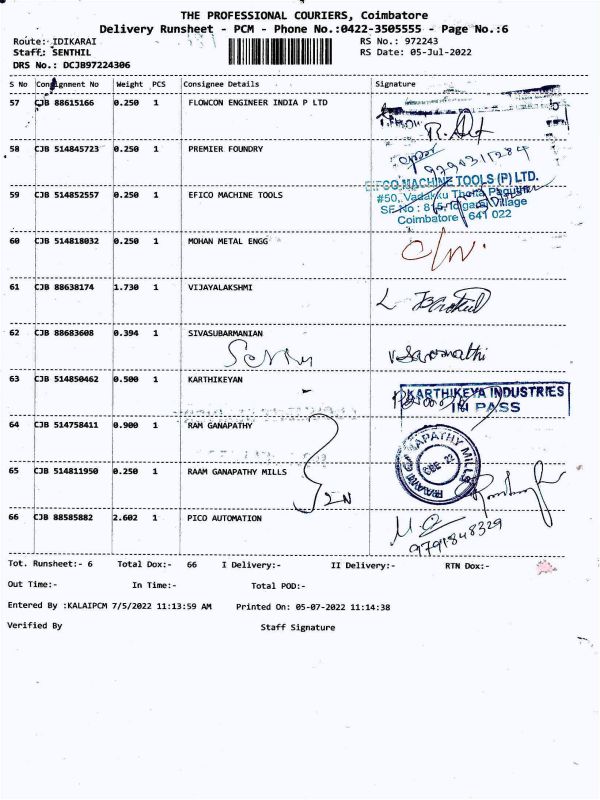 THE PROFESSIONAL COURIERS, Coimbatore
Delivery Runsheet - PCM - Phone No.:0422-3505555 - Page No.:6
Route: IDIKARAI RS No.: 972243
Staff: SENTHIL RS Date: 05-Jul-2022
DRS No.: DCJB97224306
S No Consignment No Weight PCS Consignee Details Signature
57 CJB 88615166 0.250 1 FLOWCON ENGINEER INDIA P LTD
58 CJB 514845723 0.250 1 PREMIER FOUNDRY
9791311284
EFCO MACHINE TOOLS (P) LTD.
59 CJB 514852557 0.250 1 EFICO MACHINE TOOLS #50, Vadakku Thotta
SF No : 815, Village
Coimbatore - 641 022
60 CJB 514818032 0.250 1 MOHAN METAL ENGG
61 CJB 88638174 1.730 1 VIJAYALAKSHMI
62 CJB 88683608 0.394 1 SIVASUBARMANIAN
63 CJB 514850462 0.500 1 KARTHIKEYAN
KARTHIKEYA INDUSTRIES
PASS
64 CJB 514758411 0.900 1 RAM GANAPATHY
RAAM GANAPATHY MILLS
CBE - 22
65 CJB 514811950 0.250 1 RAAM GANAPATHY MILLS
66 CJB 88585882 2.602 1 PICO AUTOMATION
9791848329
Tot. Runsheet:- 6 Total Dox:- 66 I Delivery:- II Delivery:- RTN Dox:-
Out Time:- In Time:- Total POD:-
Entered By :KALAIPCM 7/5/2022 11:13:59 AM Printed On: 05-07-2022 11:14:38
Verified By Staff Signature